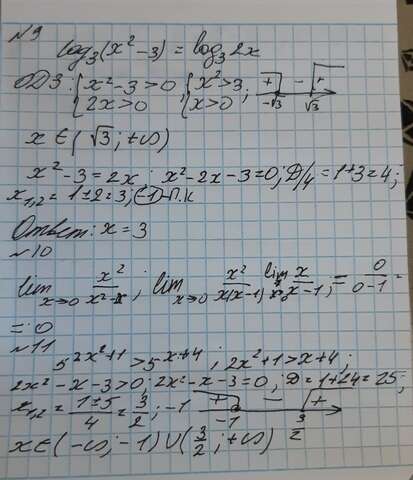 №9
log₃(x²-3) = log₃2x
ОДЗ: {x²-3>0 {x²>3; + - +
{2x>0 , {x>0 ; -√3 √3
x∈(√3; +∞)
x²-3=2x; x²-2x-3=0; D/4=1+3=4;
x₁,₂=1±2=3; (-1)-П.К
Ответ: x=3
№10
lim x→0 x²/(x²-x), lim x→0 x²/(x(x-1)) lim x→0 x/(x-1); = 0/(0-1) =
=0
№11
5^(2x²+1)>5^(x+4); 2x²+1>x+4;
2x²-x-3>0; 2x²-x-3=0; D=1+24=25;
x₁,₂=(1±5)/4=3/2; -1 + - + -1 3/2
x∈(-∞;-1)∪(3/2;+∞)